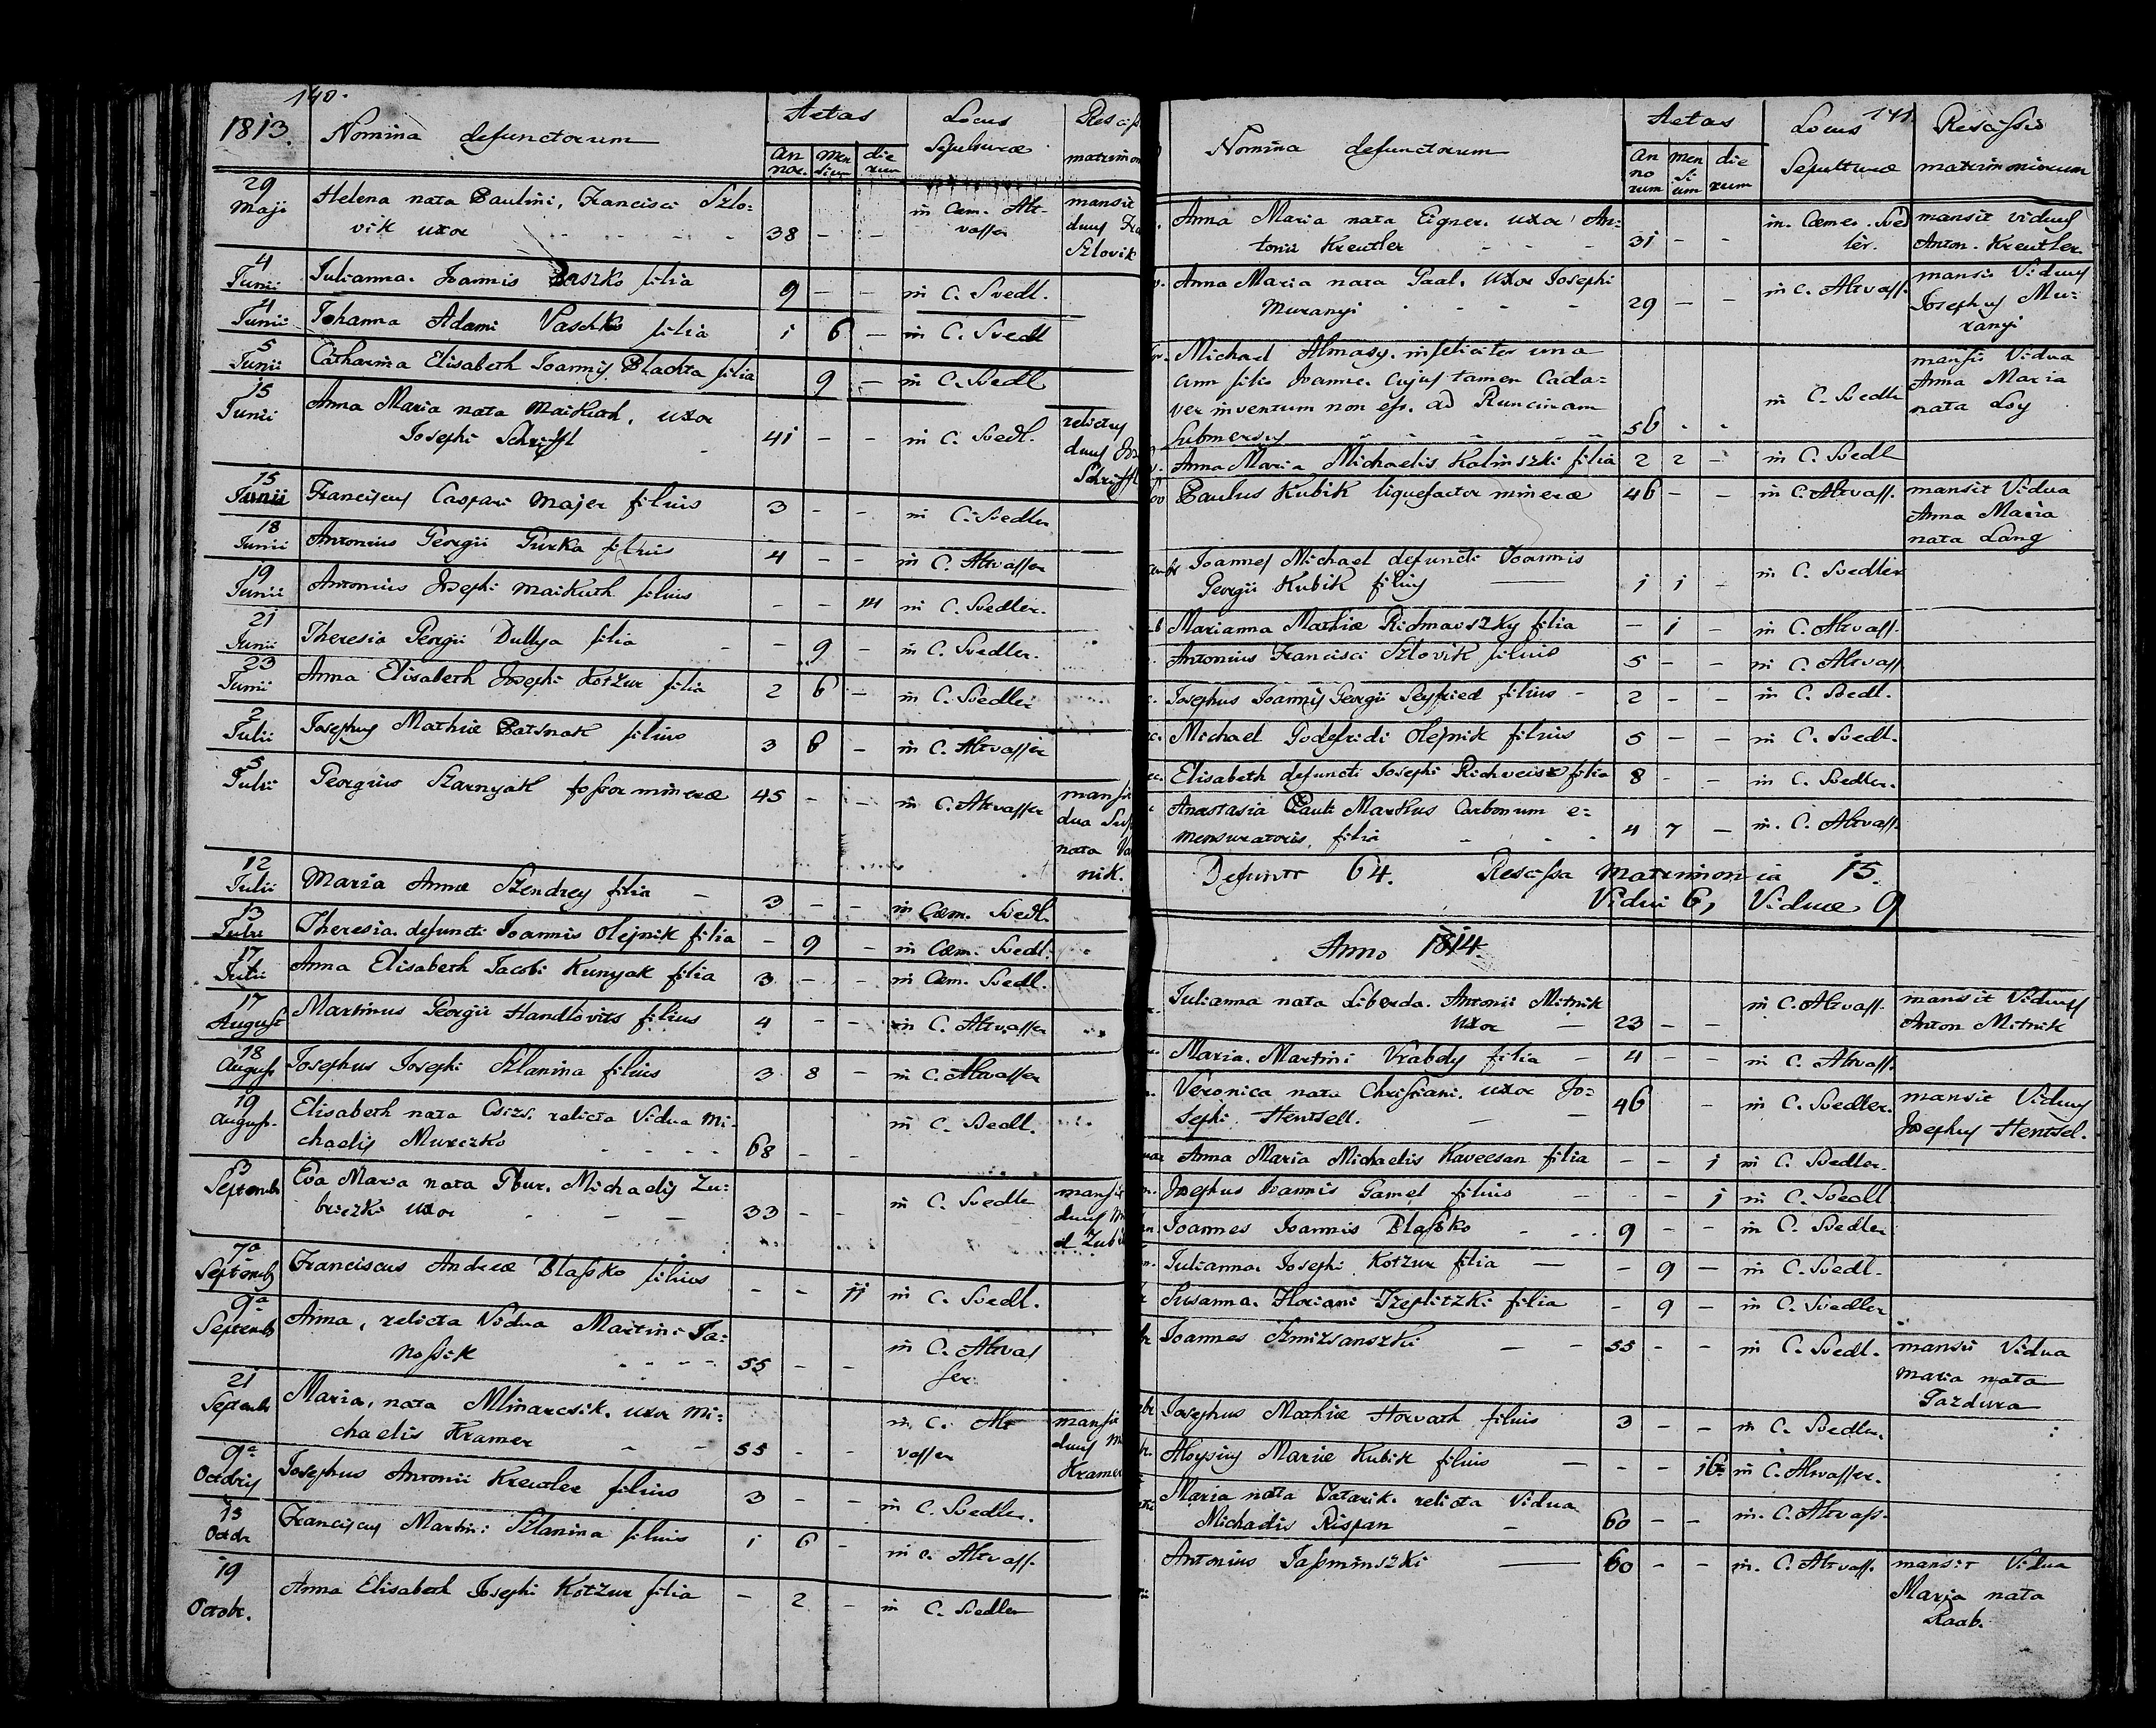 140.
1813. Nomina defunctorum Aetas Locus Sepulturæ
an nor. men sium die rum matrimon
29 Maji Helena nata Paulini, Francisci Szlo- in Cæm. Alt- mansit
vik uxor 38 - - vasser duus
Szlovik
4 Junii Julianna. Joannis Paszko filia 9 - - in C. Svedl.
4 Junii Johanna Adami Paschko filia 1 6 - in C. Svedl
5 Junii Catharina Elisabeth Joannis Blachta filia 9 - in C. Svedl
15 Junii Anna Maria nata Maikuth, uxor relictus
Josephi Schrifftl 41 - - in C. Svedl. duus
Schrifftl
15 Junii Franciscus Caspari Majer filius 3 - - in C. Svedler
18 Junii Antonius Georgii Gurka filius 4 - - in C. Altvasser
19 Junii Antonius Josephi Maikuth filius - - 14 in C. Svedler.
21 Junii Theresia Georgii Dullya filia - 9 - in C. Svedler.
23 Junii Anna Elisabeth Josephi Kotzur filia 2 6 - in C. Svedler
2 Julii Josephus Mathiæ Patsnak filius 3 6 - in C. Altvasser
5 Julii Georgius Szarnyak fossor mineræ 45 - - in C. Altvasser
dua
nata
nik.
12 Julii Maria Annæ Szendrey filia - 3 - - in Cæm. Svedl.
13 Julii Theresia defuncti Joannis Olejnik filia - 9 - in Cæm. Svedl.
17 Julii Anna Elisabeth Jacobi Kunyak filia 3 - - in Cæm. Svedl.
17 August Martinus Georgii Handlovits filius 4 - - in C. Altvasser
18 August Josephus Josephi Szlanina filius 3 8 - in C. Altvasser
19 August. Elisabeth nata Csizs. relicta Vidua Mi- in C. Svedl.
chaelis Mureczko 68 - -
3 Septemb Eva Maria nata Pbur. Michaelis Zu- in C. Svedler
briczki uxor - - - 33 - - duus
7a Septemb Franciscus Andreæ Blasko filius - - 11 in C. Svedl.
9a Septemb Anna, relicta Vidua Martini Ja- in C. Altvas
nossik 55 - - ser
21 Septemb Maria, nata Mlinarcsik. uxor Mi- in C. Alt
chaelis Kramer 55 - - vasser Kramer
9a Octobris Josephus Antonii Kreutler filius 3 - - in C. Svedler.
13 Octobr Franciscus Martini Szlanina filius 1 6 - in C. Altvass.
19 Octobr. Anna Elisabeth Josephi Kotzur filia - 2 - in C. Svedler
141
Nomina defunctorum Aetas Locus Sepulturæ Rescissio matrimoniorum
an no rum men si um die rum
Anna Maria nata Eigner. uxor An- in. Cæmer. Sved mansit viduus
tonii Kreutler 31 - - ler. Anton. Kreutler.
Anna Maria nata Gaal. Uxor Josephi in C. Altvass. mansit Viduus
Muranyi 29 - - Josephus Mu-
ranyi
Michael Almasy. infeliciter una mansit Vidua
cum filio Joanne. cujus tamen Cada- in C. Svedler Anna Maria
ver inventum non est. ad Runcinam nata Loy
submersus 56 - -
Anna Maria Michaelis Kalinszki filia 2 2 - in C. Svedl
Paulus Kubik liquefactor mineræ 46 - - in C. Altvass. mansit Vidua
Anna Maria
nata Lang
Joannes Michael defuncti Joannis in C. Svedler
Georgii Kubik filius 1 1 -
Marianna Mathiæ Ridmavszky filia - 1 - in C. Altvass.
Antonius Francisci Szlovik filius 5 - - in C. Altvass
Josephus Joannis Georgii Seyfried filius - 2 - - in C. Svedl.
Michael Godefridi Olejnik filius 5 - - in C. Svedl.
Elisabeth defuncti Josephi Richveisz filia 8 - - in C. Svedler.
Anastasia Pauli Markus Carbonum e-
mensuratoris, filia 4 7 - in. C. Altvass.
Defuncti 64. Rescissa matrimonia 15.
Vidui 6, Viduæ 9
Anno 1814.
Julianna nata Liberda. Antonii Mitnik in C. Altvass. mansit Viduus
uxor 23 - - Anton Mitnik
Maria. Martini Vrabely filia - 4 - - in C. Altvass.
Veronica nata Christiani. uxor Jo- 46 - in C. Svedler. mansit Viduus
sephi Hentsell. Josephus Hentsel.
Anna Maria Michaelis Kaveesan filia - - 1 in C. Svedler.
Josephus Joannis Gamel filius - - 1 in C. Svedl
Joannes Joannis Blasko 9 - - in C. Svedler
Julianna. Josephi Kotzur filia - - 9 - in C. Svedl.
Susanna. Floriani Tzeplitzki filia - 9 - in C. Svedler
Joannes Szmizsanszki - - 55 - - in C. Svedl. mansit Vidua
Maria nata
Gazdura
Josephus Mathiæ Horvath filius 3 - - in C. Svedler.
Aloysius Mariæ Kubik filius - - - 16 in C. Altvasser.
Maria nata Tatarik. relicta Vidua in. C. Altvass.
Michaelis Rispan - 60 - -
Antonius Jasminszki 60 - - in. C. Altvass. mansit Vidua
Maria nata
Raab.